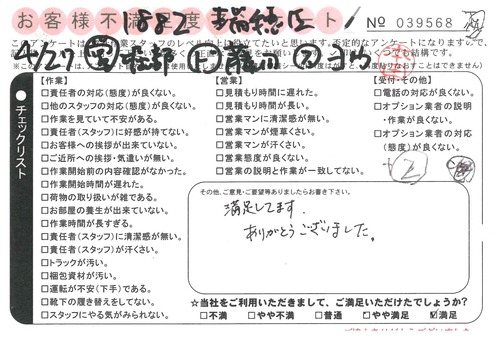 お客様不満足度 ト
1882 瑞穂区
No 039568
4/27
チェックリスト
【作業】
□責任者の対応(態度)が良くない。
□他のスタッフの対応(態度)が良くない。
□作業を見ていて不安がある。
□責任者(スタッフ)に好感が持てない。
□お客様への挨拶が出来ていない。
□ご近所への挨拶・気遣いが無い。
□作業開始前の内容確認がなかった。
□作業開始時間が遅れた。
□荷物の取り扱いが雑である。
□お部屋の養生が出来ていない。
□作業時間が長すぎる。
□責任者(スタッフ)に清潔感が無い。
□責任者(スタッフ)が汗くさい。
□トラックが汚い。
□梱包資材が汚い。
□運転が不安(下手)である。
□靴下の履き替えをしてない。
□スタッフにやる気がみられない。
【営業】
□見積もり時間に遅れた。
□見積もり時間が長い。
□営業マンに清潔感が無い。
□営業マンが煙草くさい。
□営業マンが汗くさい。
□営業態度が良くない。
□営業の説明と作業が一致してない。
【受付・その他】
□電話の対応が良くない。
□オプション業者の説明
・作業が良くない。
□オプション業者の対応
(態度)が良くない。
2
その他、ご意見・ご要望等ありましたらお書き下さい。
満足してます。
ありがとうございました。
☆当社をご利用いただきまして、ご満足いただけたでしょうか?
□不満 □やや不満 □普通 □やや満足 ☑満足